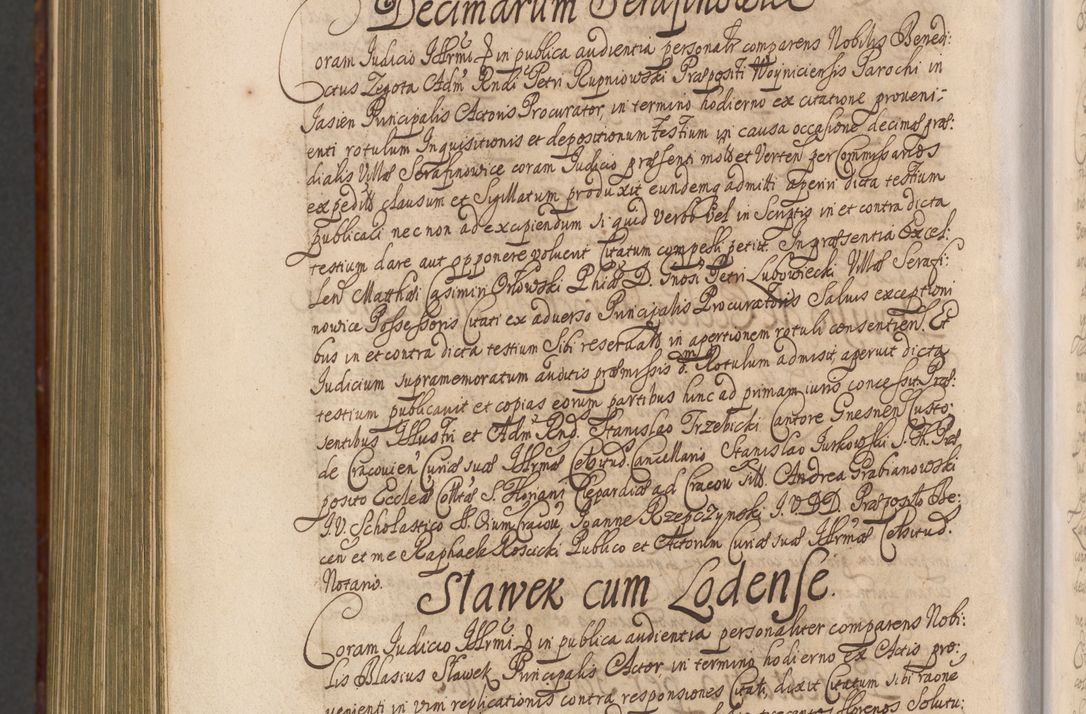 Decimarum Serafinoviae
Coram Judicio Illrmi & in publica audientia personalr comparens Nobilis Bened:
ictus Zegota Adm Rndi Petri Rupniowski Præpositi Woyniciensis Parochi in
Jasien Principalis Actoris Procurator, in termino hodierno ex citatione proveni:
enti rotulum Inquisitionis et depositionum testium in causa occasione decimæ præ:
dialis Villæ Serafinowice coram Judicio præsenti mot et Verten per Commissarios
expediti clausum et Sigillatum produxit eundemq admitti aperiri dicta testium
publicari nec non ad excipiendum si quid verbo vel in Scriptis in et contra dicta
testium dare aut opponere voluerit Citatum compelli petiit. In præsentia Excel:
len Matthæi Casimiri Orłowski Phiæ D. Gnosi Petri Lubowiecki Villæ Serafi:
nowice Possessoris Citati ex adverso Principalis Procuratoris Salvis exceptioni
bus in et contra dicta testium Sibi reservatis in apertionem rotuli consentien. Et
Judicium supramemoratum auditis præmissis d. Rotulum admisit aperuit dicta
testium publicavit et copias eorum partibus hinc ad primam iuris concessit Præ:
sentibus Illustri et Adm Rnd. Stanislao Trzebicki Cantore Gnesnen Custo:
de Cracovien Curiæ suæ Illrmæ Celsitud. Cancellario Stanislao Jurkowski S. Th. Præ
posito Eccleæ Colltæ S. Floriani Clepardiæ ad Cracou Sitt. Andrea Grabianowski
J.V. Scholastico S. Oium Cracov, Joanne Rzepczynski J.V.D.D. Præposito Be:
cen et me Raphaele Kosucki Publico et Actorum Curiæ suæ Illrmæ Celsitud.
Notario.
Slawek cum Lodense.
Coram Judicio Illrmi & in publica audientia personaliter comparens Nobi:
lis Blasius Slawek Principalis Actor in termino hodierno ex Actis pro:
venienti in vim replicationis contra responsiones Citati, dixit Citatum sibi raone
florenos Solutu: